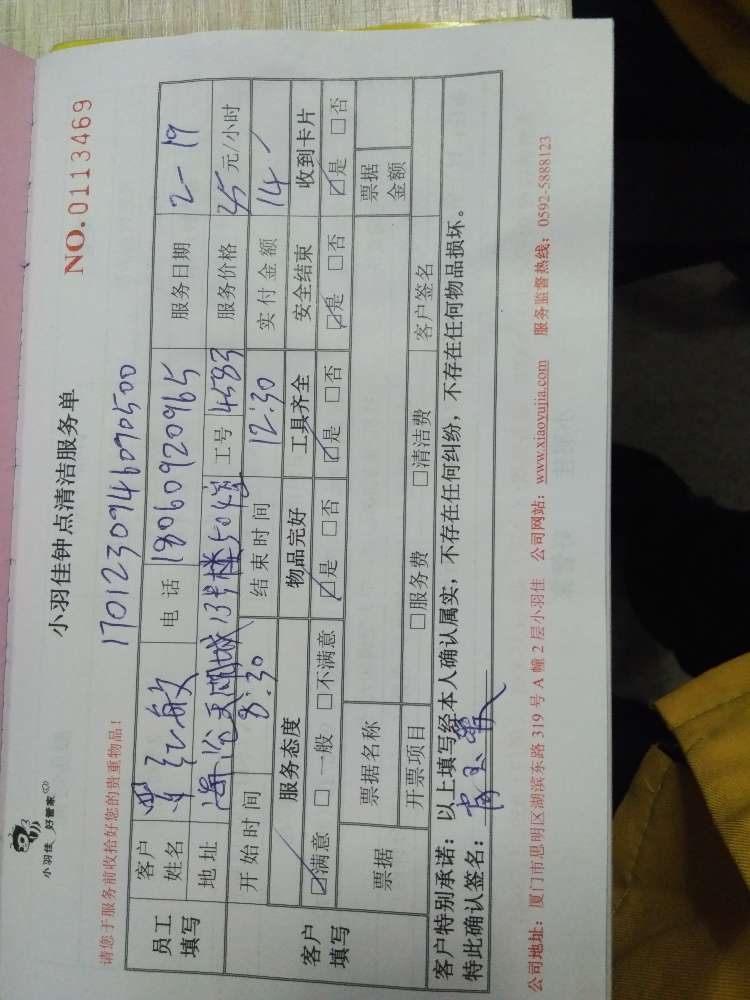 小羽佳 好管家
小羽佳钟点清洁服务单
请您于服务前收拾好您的贵重物品!
1701230946090500
NO.0113469
员工填写
客户姓名 红敏 电话 18060920965 服务日期 2-19
地址 海沧天湖城13号楼504室 工号 4583 服务价格 35 元/小时
开始时间 8:30 结束时间 12:30 实付金额 14
客户填写
服务态度 物品完好 工具齐全 安全结束 收到卡片
☑满意 □一般 □不满意 ☑是 □否 ☑是 □否 ☑是 □否 ☑是 □否
票据 票据名称 票据金额
开票项目 □服务费 □清洁费 客户签名
客户特别承诺:以上填写经本人确认属实,不存在任何纠纷,不存在任何物品损坏。
特此确认签名:
公司地址:厦门市思明区湖滨东路 319 号 A 幢 2 层小羽佳 公司网站:www.xiaoyujia.com 服务监督热线:0592-5888123